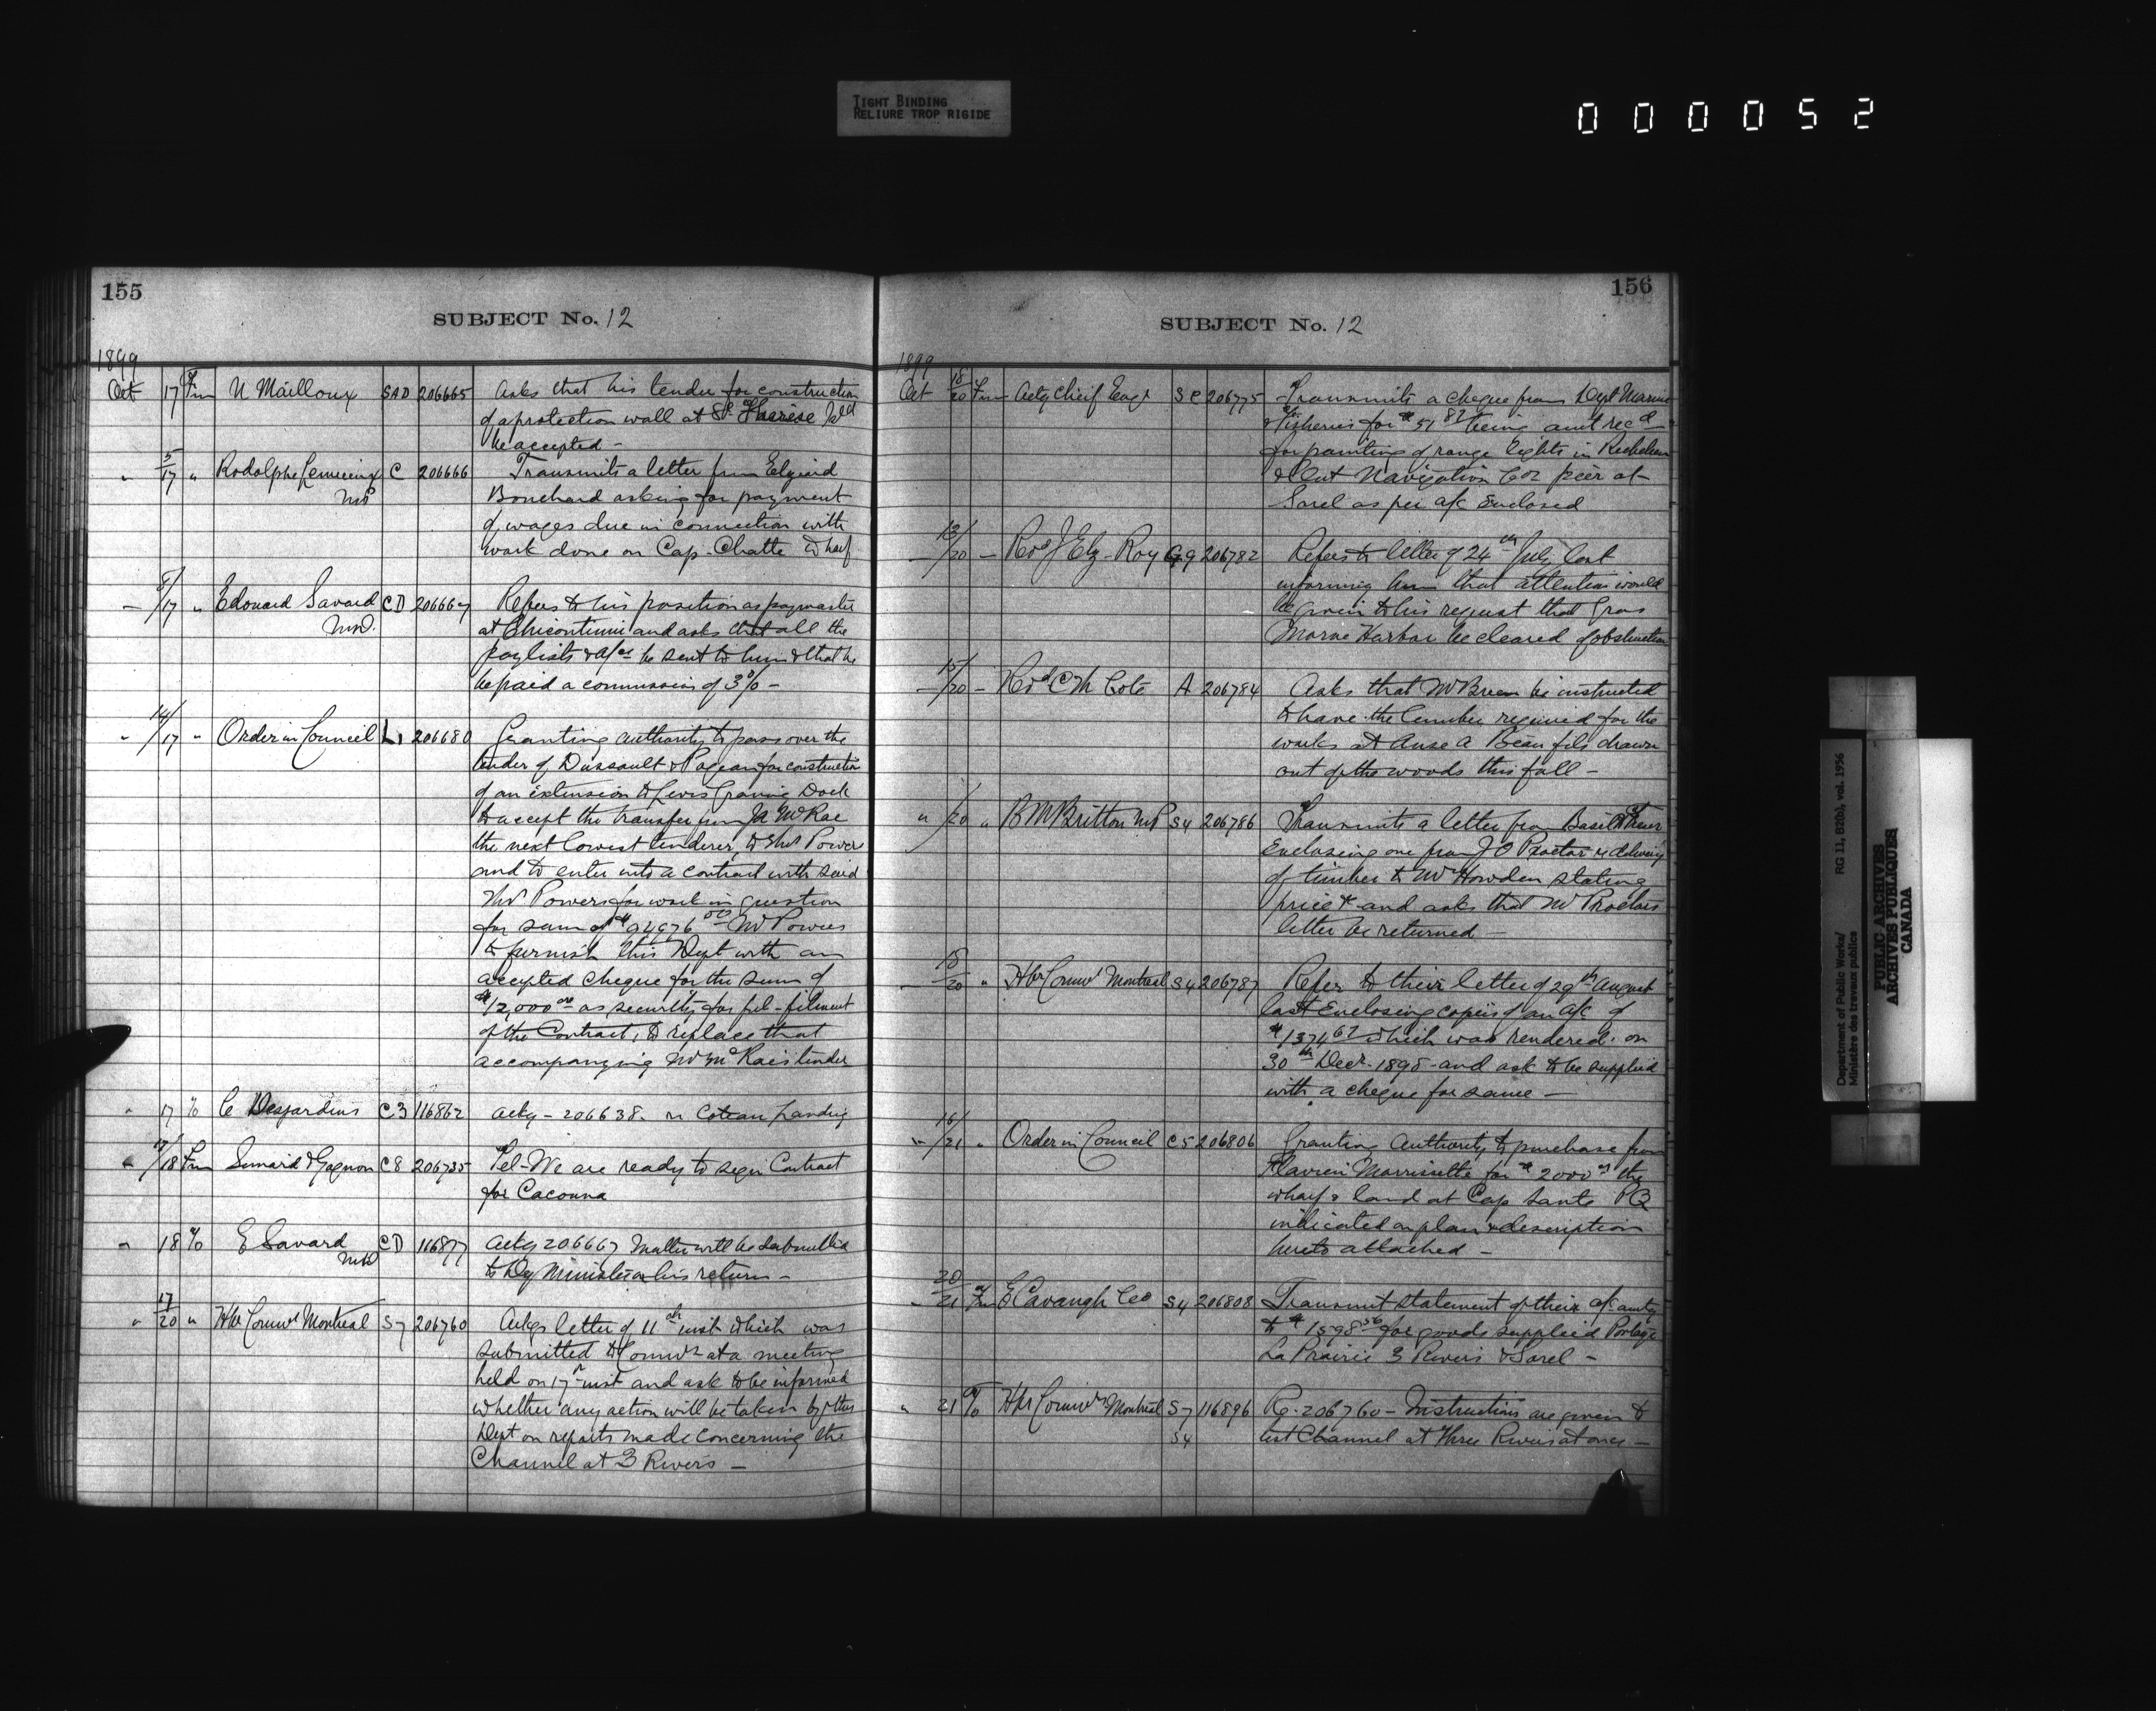 TIGHT BINDING
RELIURE TROP RIGIDE
0 0 0 0 5 2
155
SUBJECT No. 12
1899
Oct 17 Fm N Mailloux SAD 206665 Asks that his tender for construction
of a protection wall at St Therèse
be accepted -
" 5/17 " Rodolphe Lemieux C 206666 Transmits a letter from Elzeard
MP Bouchard asking for payment
of wages due in connection with
work done on Cap-Chatte Wharf
- 8/17 " Edouard Savard CD 206667 Refers to his position as paymaster
MP. at Chicoutimi and asks that all the
paylists & a/cs be sent to him & that he
be paid a commission of 3% -
" 14/17 " Order in Council L1 206680 Granting authority to pass over the
tender of Dussault & Pageau for construction
of an extension to Levis Graving Dock
to accept the transfer from Mr McRae
the next lowest tenderer, to Powers
and to enter into a contract with said
Mr Powers for work in question
for sum of $94976 00 Mr Powers
to furnish this Dept with an
accepted cheque for the sum of
$12,000 00 as security for ful-filment
of the Contract, to replace that
accompanying Mr McRae's tender
" 17 % C Desjardins C3 116862 Ackg - 206638. re Coteau Landing
" 17/18 Fm Simard & Gagnon C8 206735 Tel-We are ready to sign Contract
for Cacouna
" 18 % E Savard CD 116877 Ackg 206667 Matter will be submitted
MP to Dy Minister on his return -
" 17/20 " Hbr Commrs Montreal S7 206760 Ackgs letter of 11th inst which was
submitted to Commrs at a meeting
held on 17th inst and ask to be informed
whether any action will be taken by this
Dept on reports made concerning the
Channel at 3 Rivers -
156
SUBJECT No. 12
1899
Oct 18/20 Fm Actg Chief Engr SC 206775 Transmits a cheque from Dept Marine
& Fisheries for $51 82 being amt recd
for painting of range lights in Richelieu
& Ont Navigation Cos pier at
Sorel as per a/c Enclosed
- 13/20 - Revd J Elz - Roy G9 206782 Refers to letter of 24th July last
informing him that attention would
be given to his request that Gros
Morne Harbor be cleared of obstruction
- 15/20 - Revd C M Cote A 206784 Asks that Mr Breen be instructed
to have the lumber required for the
works at Anse a Beau fils drawn
out of the woods this fall -
" /20 " B M Britton MP S4 206786 Transmits a letter from Basil
Enclosing one from J O Proctor re delivery
of timber to Mr Howden stating
price & and asks that Mr Proctors
letter be returned -
- 18/20 " Hbr Commrs Montreal S4 206787 Refer to their letter of 29th August
last Enclosing copies of an a/c of
$1374 62 which was rendered on
30th Decr. 1898 - and ask to be supplied
with a cheque for same -
" 16/21 " Order in Council C5 206806 Granting Authority to purchase from
Flavien Morrissette for $2000 00 the
wharf & land at Cap Sante PQ
indicated on plan & description
hereto attached -
- 20/21 Fm E Cavanagh Co S4 206808 Transmit statement of their a/c amtg
to $1598 56 for goods supplied Portage
La Prairie 3 Rivers & Sorel -
" 21 % Hbr Commrs Montreal S7 116896 Re. 206760 - Instructions are given to
S4 test Channel at Three Rivers at once -
Department of Public Works/ RG 11, B2(b), vol. 1956
Ministère des travaux publics
PUBLIC ARCHIVES
ARCHIVES PUBLIQUES
CANADA